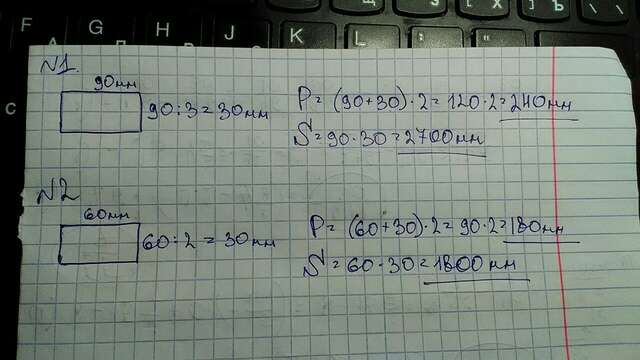 F G H J K L
C
N1.
90мм
90:3=30мм
P=(90+30)·2=120·2=240мм
S=90·30=2700мм
N2
60мм
60:2=30мм
P=(60+30)·2=90·2=180мм
S=60·30=1800мм